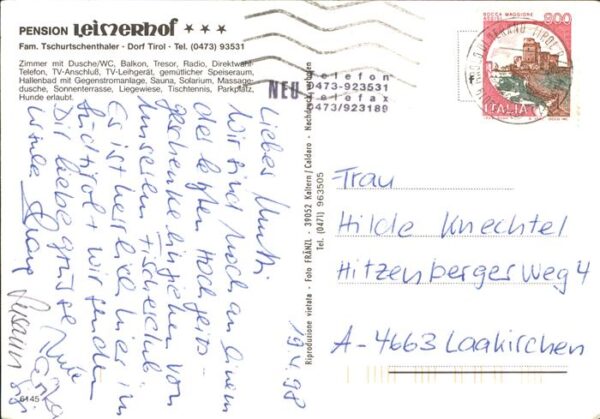 PENSION Leimerhof ★ ★ ★
Fam. Tschurtschenthaler - Dorf Tirol - Tel. (0473) 93531
Zimmer mit Dusche/WC, Balkon, Tresor, Radio, Direktwahl-
Telefon, TV-Anschluß, TV-Leihgerät, gemütlicher Speiseraum,
Hallenbad mit Gegenstromanlage, Sauna, Solarium, Massage-
dusche, Sonnenterrasse, Liegewiese, Tischtennis, Parkplatz,
Hunde erlaubt.
NEU
Telefon
0473-923531
Telefax
0473/923189
ROCCA MAGGIORE
ASSISI
800
ITALIA
Liebes
Wir sind noch an einem
der letzten Hochzeits-
geschenke
unserem Fischerclub
Es ist herrlich hier in
Südtirol + wir senden
Dir liebe Grüsse
Ursula
Susann
19.4.98
Riproduzione vietata - Foto FRANZL - 39052 Kaltern / Caldaro - Nachdruck verboten
Tel. (0471) 963505
Frau
Hilde Knechtel
Hitzenbergerweg 4
A-4663 Laakirchen
6145